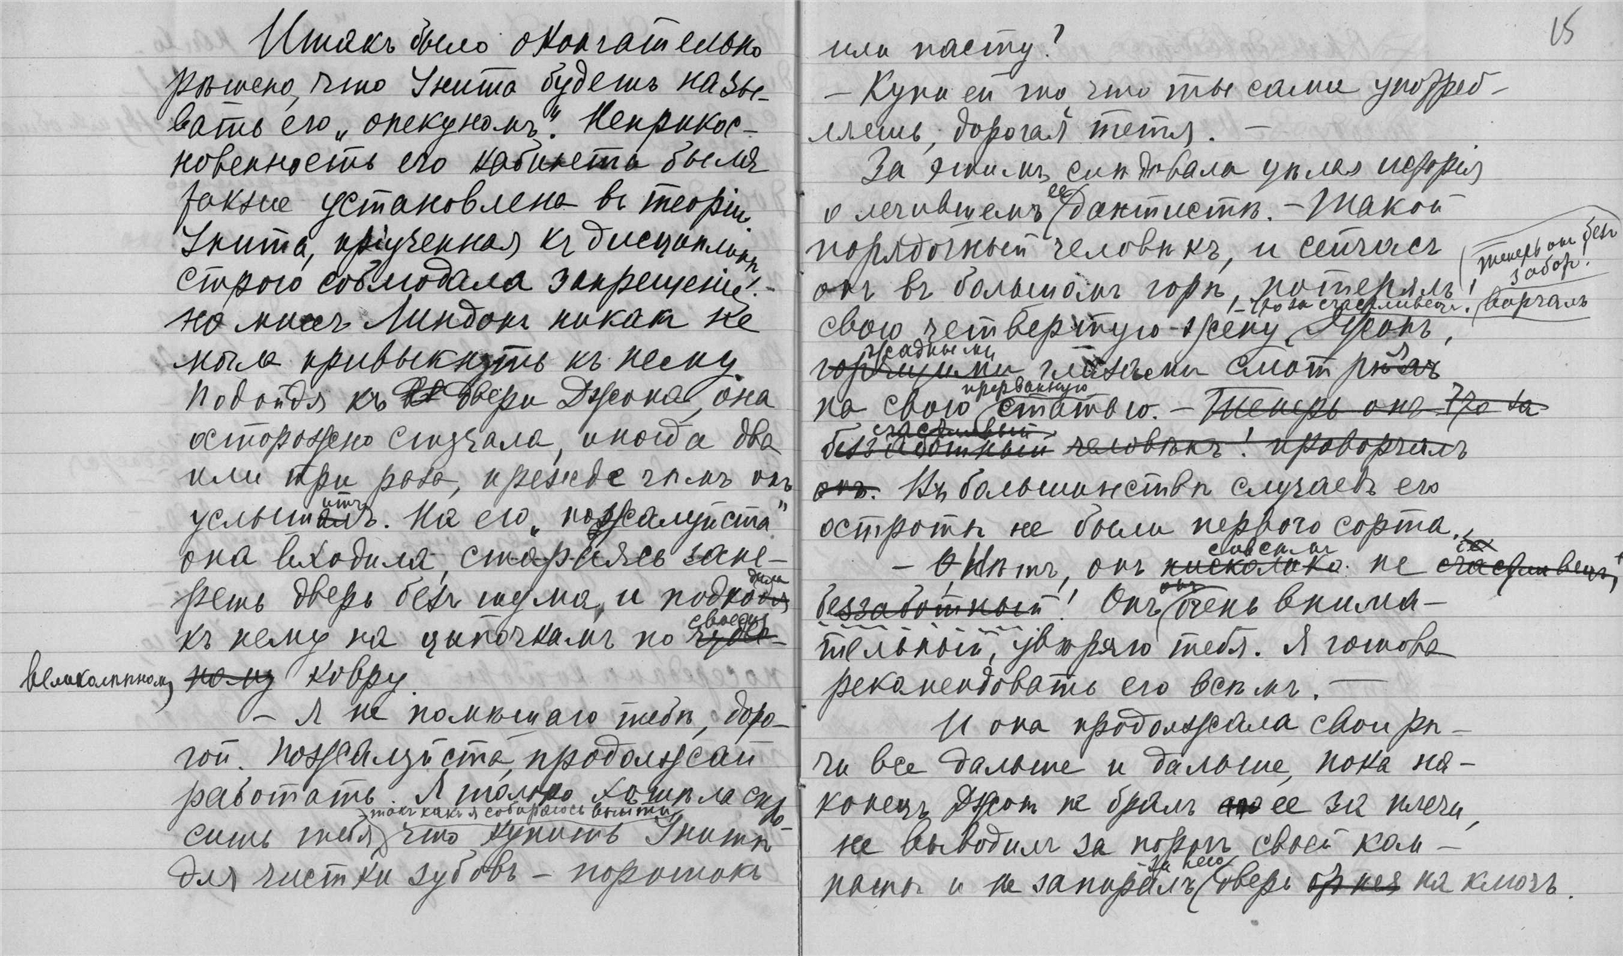 Итакъ было окончательно
рѣшено, что Унита будетъ назы-
вать его „опекуномъ“. Неприкос-
новенность его кабинета была
также установлена въ теоріи.
Унита, пріученная къ дисциплинѣ,
строго соблюдала запрещеніе. -
но миссъ Линдонъ никакъ не
могла привыкнуть къ нему.
Подойдя къ двери Джона, она
осторожно стучала, иногда два
или три раза, прежде чѣмъ онъ
услышитъ. На его „пожалуйста“
она входила, стараясь запе-
реть дверь безъ шума, и подходила
къ нему на цыпочкахъ по своему
великолѣпному ковру.
— Я не помѣшаю тебѣ, доро-
гой. Пожалуйста, продолжай
работать. Я только хотѣла спро-
такъ какъ я собираюсь выйти
сить тебя, что купить Унитѣ
для чистки зубовъ — порошокъ
15
или пасту?
— Купи ей то, что ты сама упо треб-
ляешь, дорогая тетя. —
За этимъ слѣдовала цѣлая исторія
о лечившемъ ее дантистѣ. — Такой
порядочный человѣкъ, и сейчасъ
онъ въ большомъ горѣ, потерялъ
теперь онъ безъ
забор!
ворчалъ
свою четвертую жену.
Джонъ,
жадными
глазами смотря
на свою прерванную статью. — Теперь она
беззаботный счастливый человѣкъ! проворчалъ
онъ. Въ большинствѣ случаевъ его
остроты не были перваго сорта.
— О нѣтъ, онъ совсѣмъ нисколько не счастливецъ,
беззаботный! Онъ очень внима-
тельный, увѣряю тебя. Я готова
рекомендовать его всѣмъ. —
И она продолжала свои рѣ-
чи все дальше и дальше, пока на-
конецъ Джонъ не бралъ ее за плечи,
не выводилъ за порогъ своей ком-
наты и не запиралъ за нею дверь на ключъ.